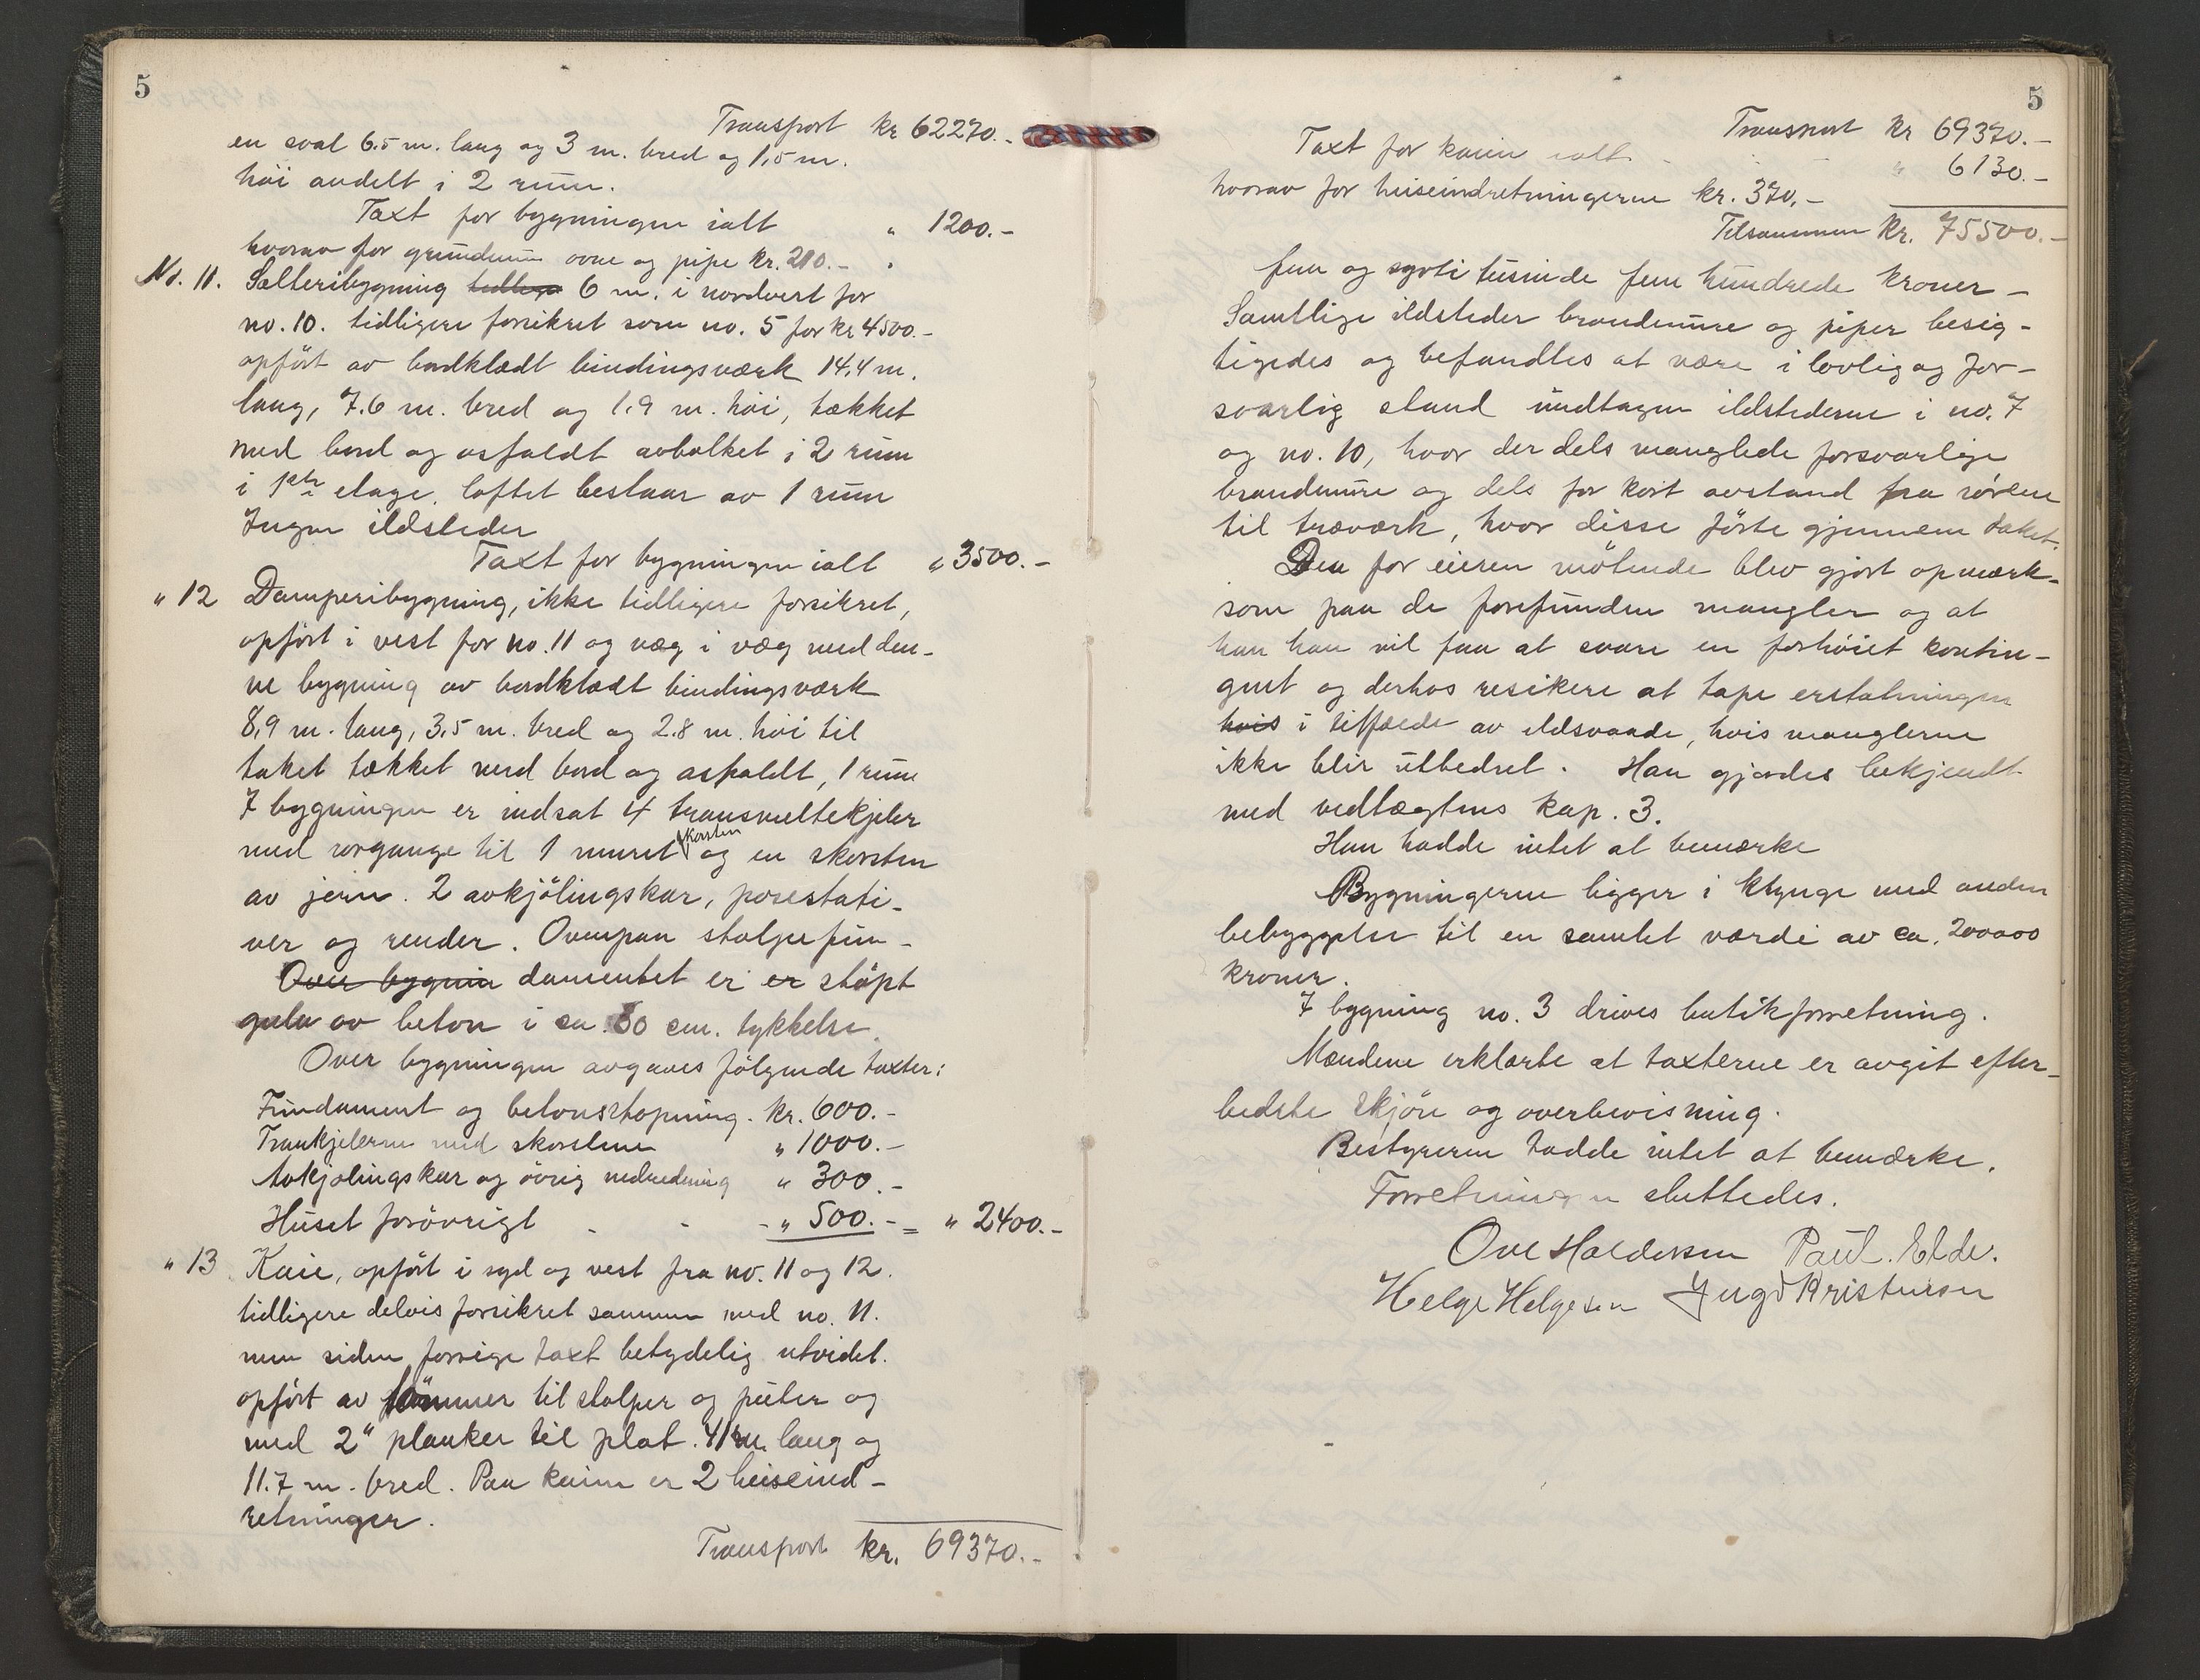 5
Transport kr 62270.-
en sval 6.5 m. lang og 3 m. bred og 1,5 m.
høi avdelt i 2 rum.
Taxt for bygningen ialt " 1200.-
hvorav for grundmur ovne og pipe kr. 210.-
No. 11. Salteribygning 6 m. i nordvest for
no. 10. tidligere forsikret som no. 5 for kr 4500.-
opført av bordklædt bindingsværk 14,4 m.
lang, 7.6 m. bred og 1.9 m. høi, tækket
med bord og asfaldt avbalket i 2 rum
i 1ste etage. loftet bestaar av 1 rum
Ingen ildsteder
Taxt for bygningen ialt " 3500.-
" 12 Damperibygning, ikke tidligere forsikret,
opført i vest for no. 11 og væg i væg med den-
ne bygning av bordklædt bindingsværk
8,9 m. lang, 3,5 m. bred og 2.8 m. høi til
taket tækket med bord og asfaldt, 1 rum
I bygningen er indsat 4 transmeltekjeler
med rørgange til 1 muret skorsten og en skorsten
av jern. 2 avkjölingskar, posestati-
ver og render. Ovenpaa stolpefun-
Over bygnin damentet er er støpt
gulv av beton i ca. 30 cm. tykkelse.
Over bygningen avgaves følgende taxter:
Fundament og betonstøpning. kr. 600.-
Trankjelerne med skorstene " 1000.-
Avkjølingskar og øvrig nedredning " 300.-
Huset forøvrigt - - - " 500.- = " 2400.-
" 13. Kaie, opført i syd og vest fra no. 11 og 12.
tidligere delvis forsikret sammen med no. 11.
men siden forrige taxt betydelig utvidet.
opført av tømmer til stolper og puter og
med 2" planker til plat. 41 m. lang og
11.7 m. bred. Paa kaien er 2 heiseind-
retninger.
Transport kr. 69370.-
5
Transport kr 69370.-
Taxt for kaien ialt - - " 6130.-
hvorav for heiseindretningerne kr. 370,-
Tilsammen kr. 75500.-
fem og sytti tusinde fem hundrede kroner -
Samtlige ildsteder brandmure og piper besig-
tigedes og befandtes at være i lovlig og for-
svarlig stand undtagen ildstederne i no. 7
og no. 10, hvor der dels manglede forsvarlige
brandmure og dels for kort avstand fra rørene
til træværk, hvor disse førte gjennem taket.
Den for eieren møtende blev gjort opmærk-
som paa de forefundne mangler og at
han han vil faa at svare en forhøiet kontin-
gent og derhos resikere at tape erstatningen
hvis i tilfælde av ildsvaade, hvis manglerne
ikke blir utbedret. Han gjordes bekjendt
med vedtægtens kap. 3.
Han hadde intet at bemærke
Bygningerne ligger i klynge med anden
bebyggelse til en samlet værdi av ca. 200000
kroner.
I bygning no. 3 drives butikforretning.
Mændene erklærte at taxterne er avgit efter
bedste skjøn og overbevisning.
Bestyreren hadde intet at bemærke.
Forretningen sluttedes.
Ove Haldorsen Paul. Elde.
Helge Helgesen Ingv Kristensen